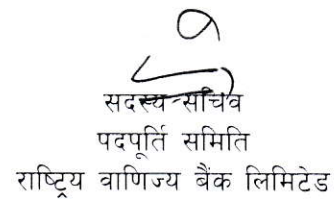 सदस्य-सचिव
पदपूर्ति समिति
राष्ट्रिय वाणिज्य बैंक लिमिटेड